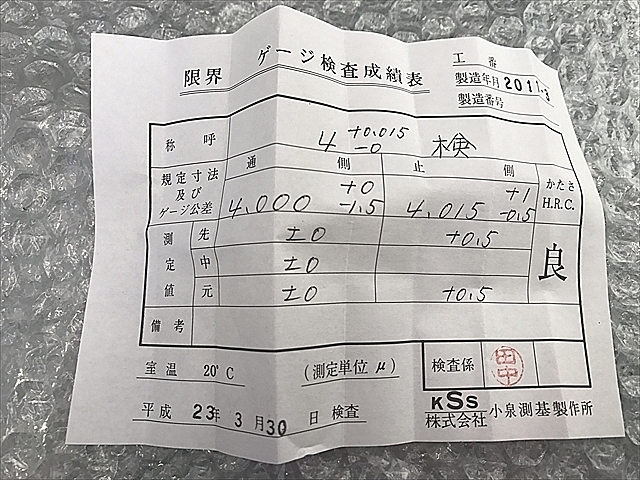 限界 ゲージ検査成績表
工番
製造年月 2011-3
製造番号
称呼 4 +0.015 -0 検
規定寸法及びゲージ公差 通側 4.000 +0 -1.5 止側 4.015 +1 -0.5 かたさ H.R.C.
測定値 先 ±0 +0.5 良
中 ±0
元 ±0 +0.5
備考
室温 20°C (測定単位μ) 検査係 田中
平成 23年 3月 30日 検査
KSS 株式会社 小泉測基製作所